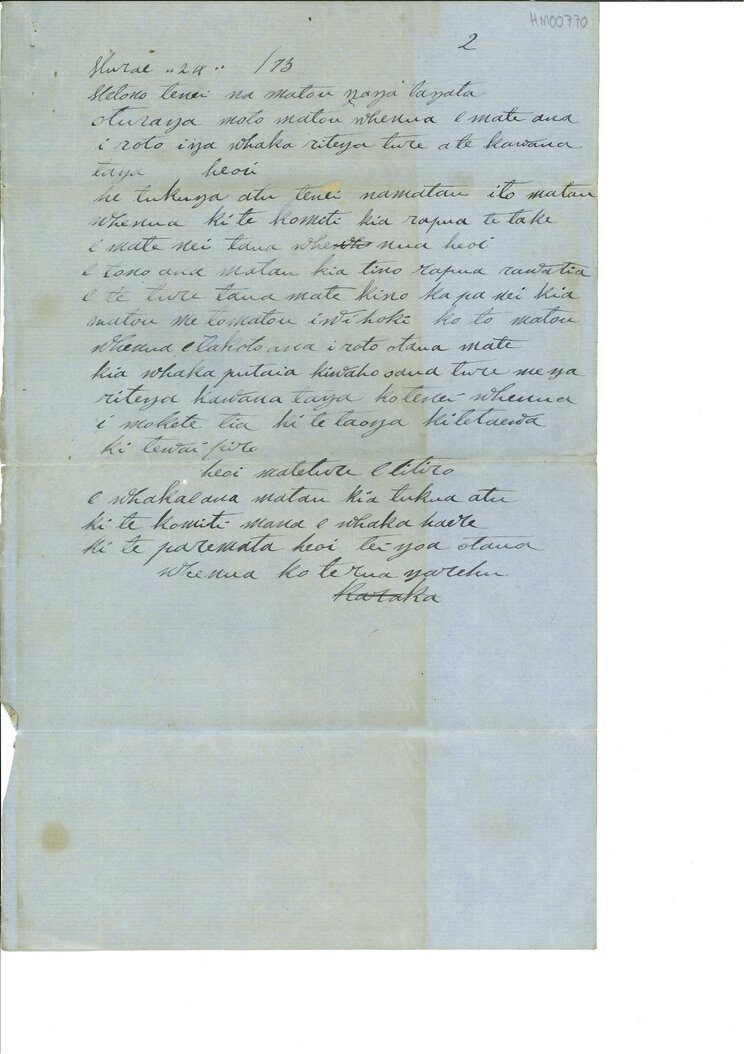 HM00770
2
Hurae "24" /73
He tono tenei na matou naga tagata
oturaga moto matou whenua e mate ana
i roto iga whaka ritega ture ate kawana
taga heoi
he tukuga atu tenei namatau ito matau
whenua ki te komiti kia rapua te take
e mate nei taua whewho nua heoi
e tono ana matau kia tino rapua rawatia
e te ture taua mate kino ka pa nei kia
matou me tomatou iwi hoki ko to matou
whenua e takoto ana i roto otaua mate
kia whaka putaia kiwaho oana ture me ga
ritega kawana taga ko tenei whenua
i mokete tia ki te taoga ki tetaewa
ki tewai piro
heoi mateture e titiro
e whakae ana matau kia tukua atu
ki te komiti mana e whaka haere
ki te paremata heoi te igoa otaua
whenua ko te rua garehu
karaka